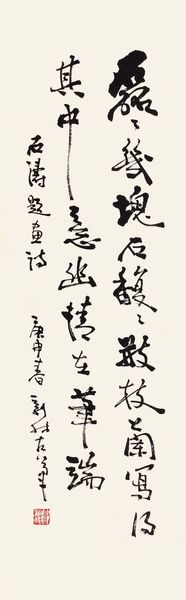 磊々幾塊石馥々數枝蘭寫得
其中意幽情在筆端
石濤題畫詩
庚申春